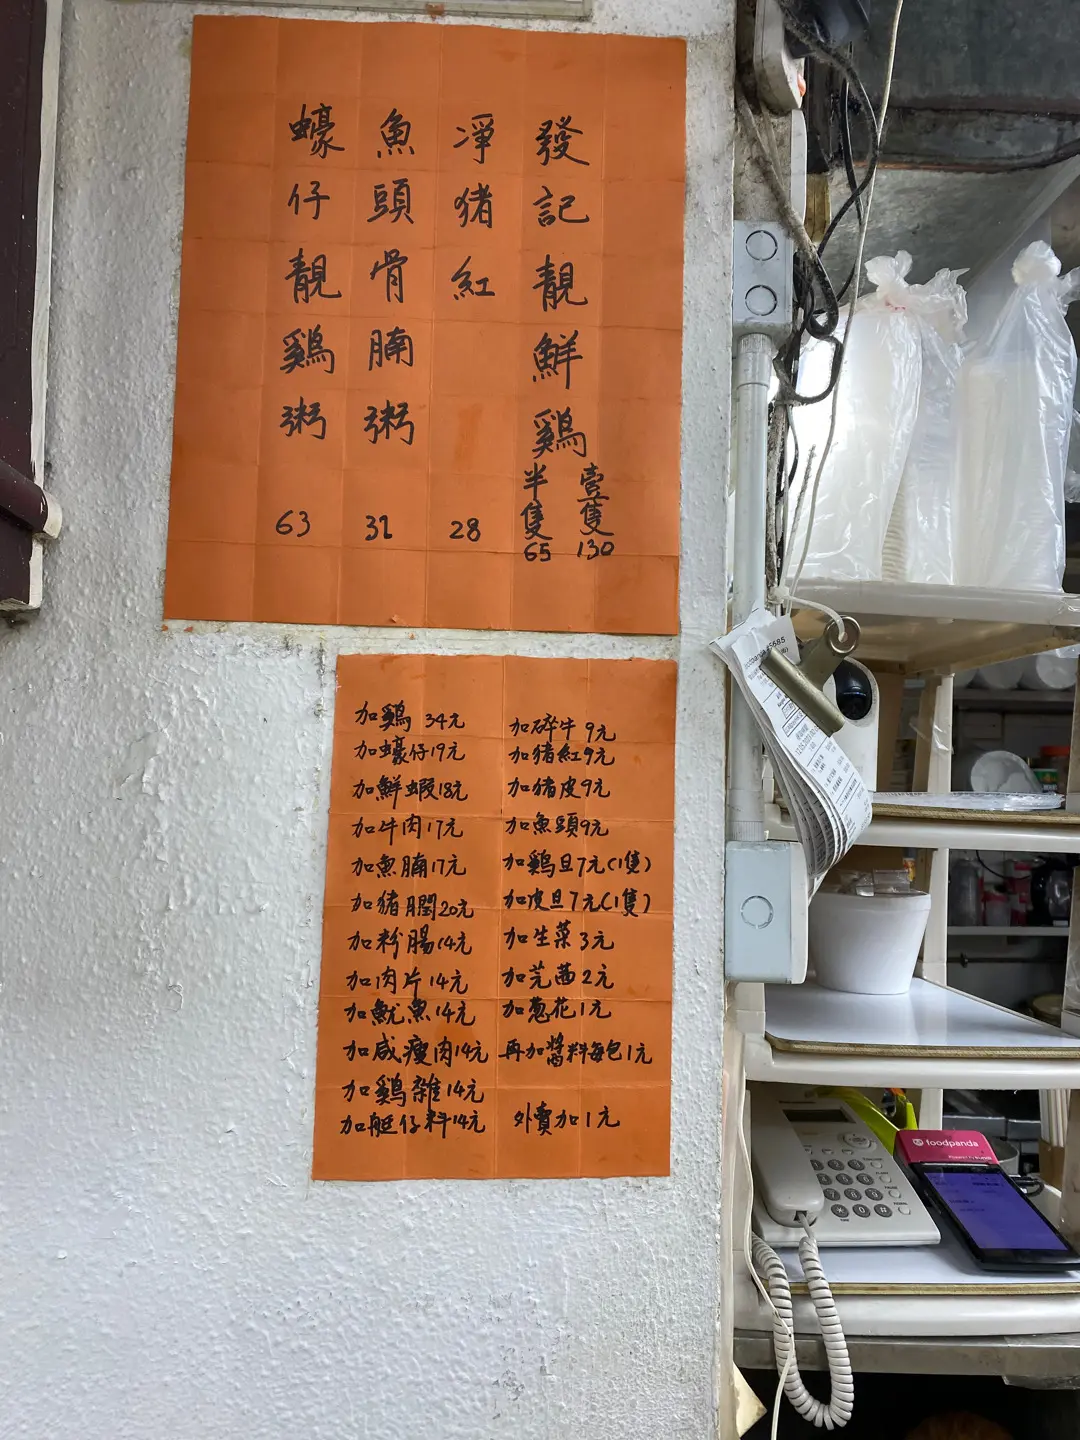 發記靚鮮鷄
壹隻 130
半隻 65
淨猪紅 28
魚頭骨腩粥 32
蠔仔靚鷄粥 63
加鷄 34元
加蠔仔19元
加鮮蝦18元
加牛肉17元
加魚腩17元
加猪膶20元
加粉腸14元
加肉片14元
加魷魚14元
加咸瘦肉14元
加鷄雜14元
加艇仔料14元
加碎牛 9元
加猪紅9元
加猪皮9元
加魚頭9元
加鷄旦7元(1隻)
加皮旦7元(1隻)
加生菜3元
加芫茜2元
加葱花1元
再加醬料每包1元
外賣加1元
foodpanda